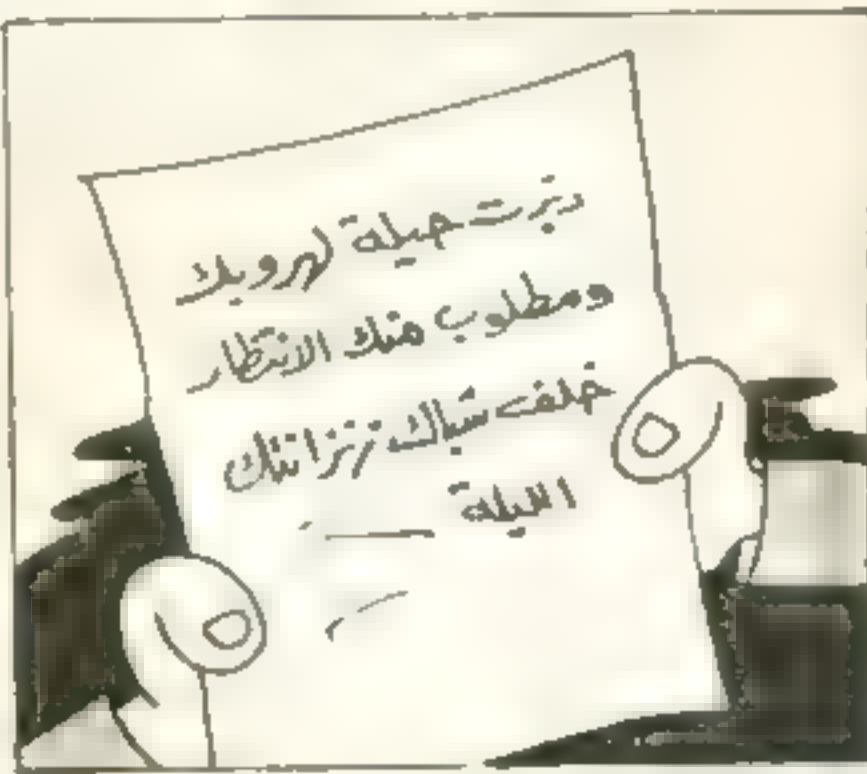 دبرت حيلة لهروبك
ومطلوب منك الانتظار
خلف شباك زنزانتك
الليلة